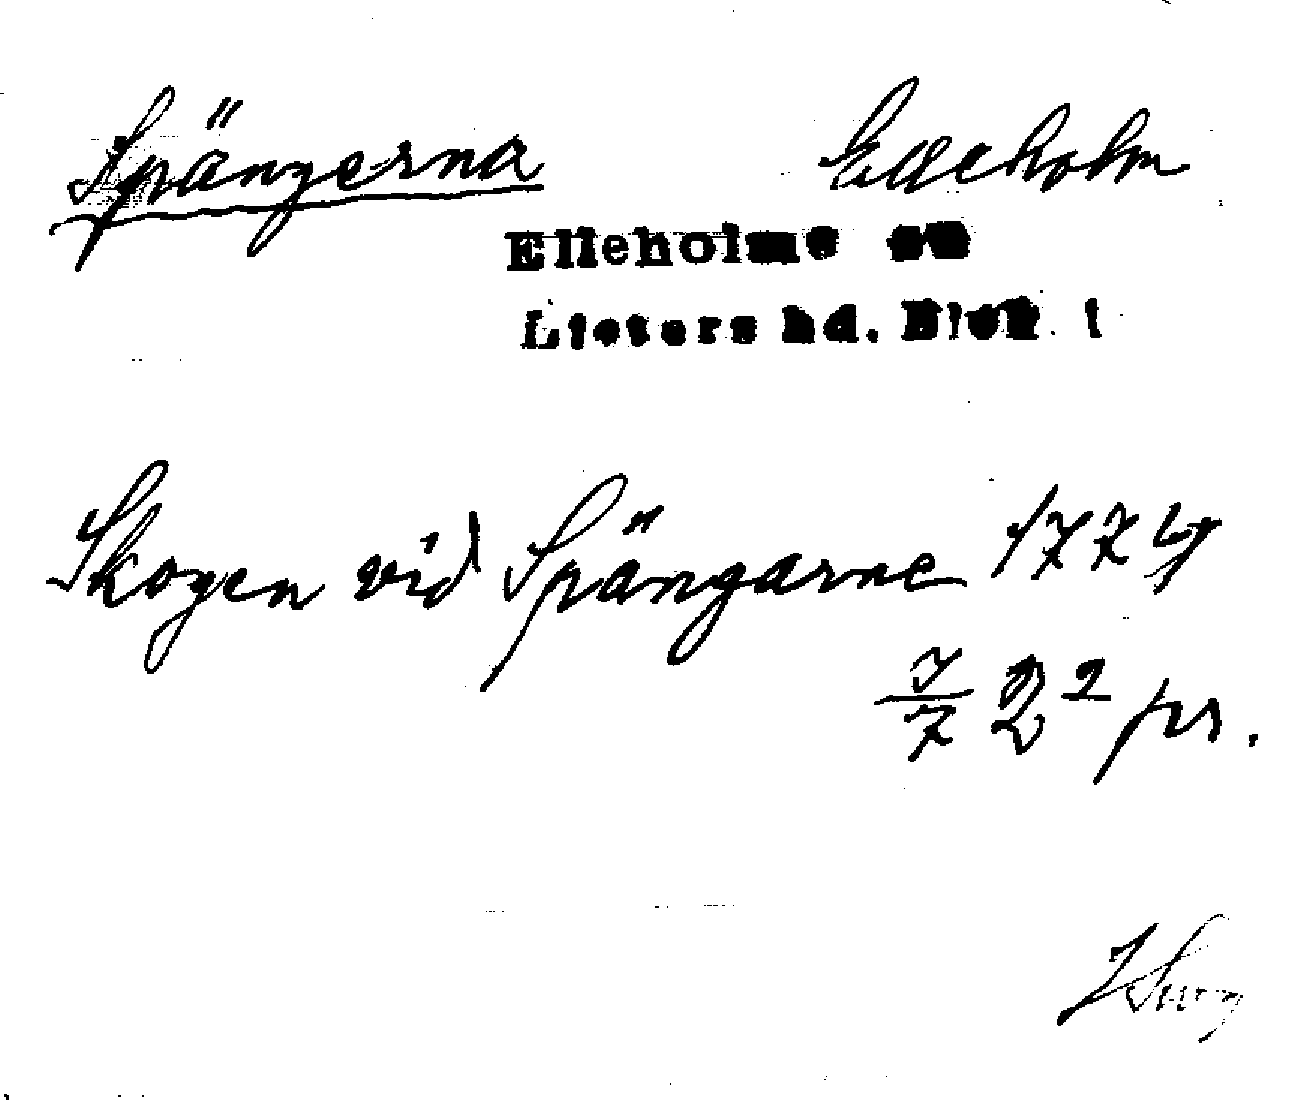 Spängerna Elleholm
Elleholms sn
Listers hd. Blek. l
Skogen vid Spängarne 1774
7/7 2² pr.